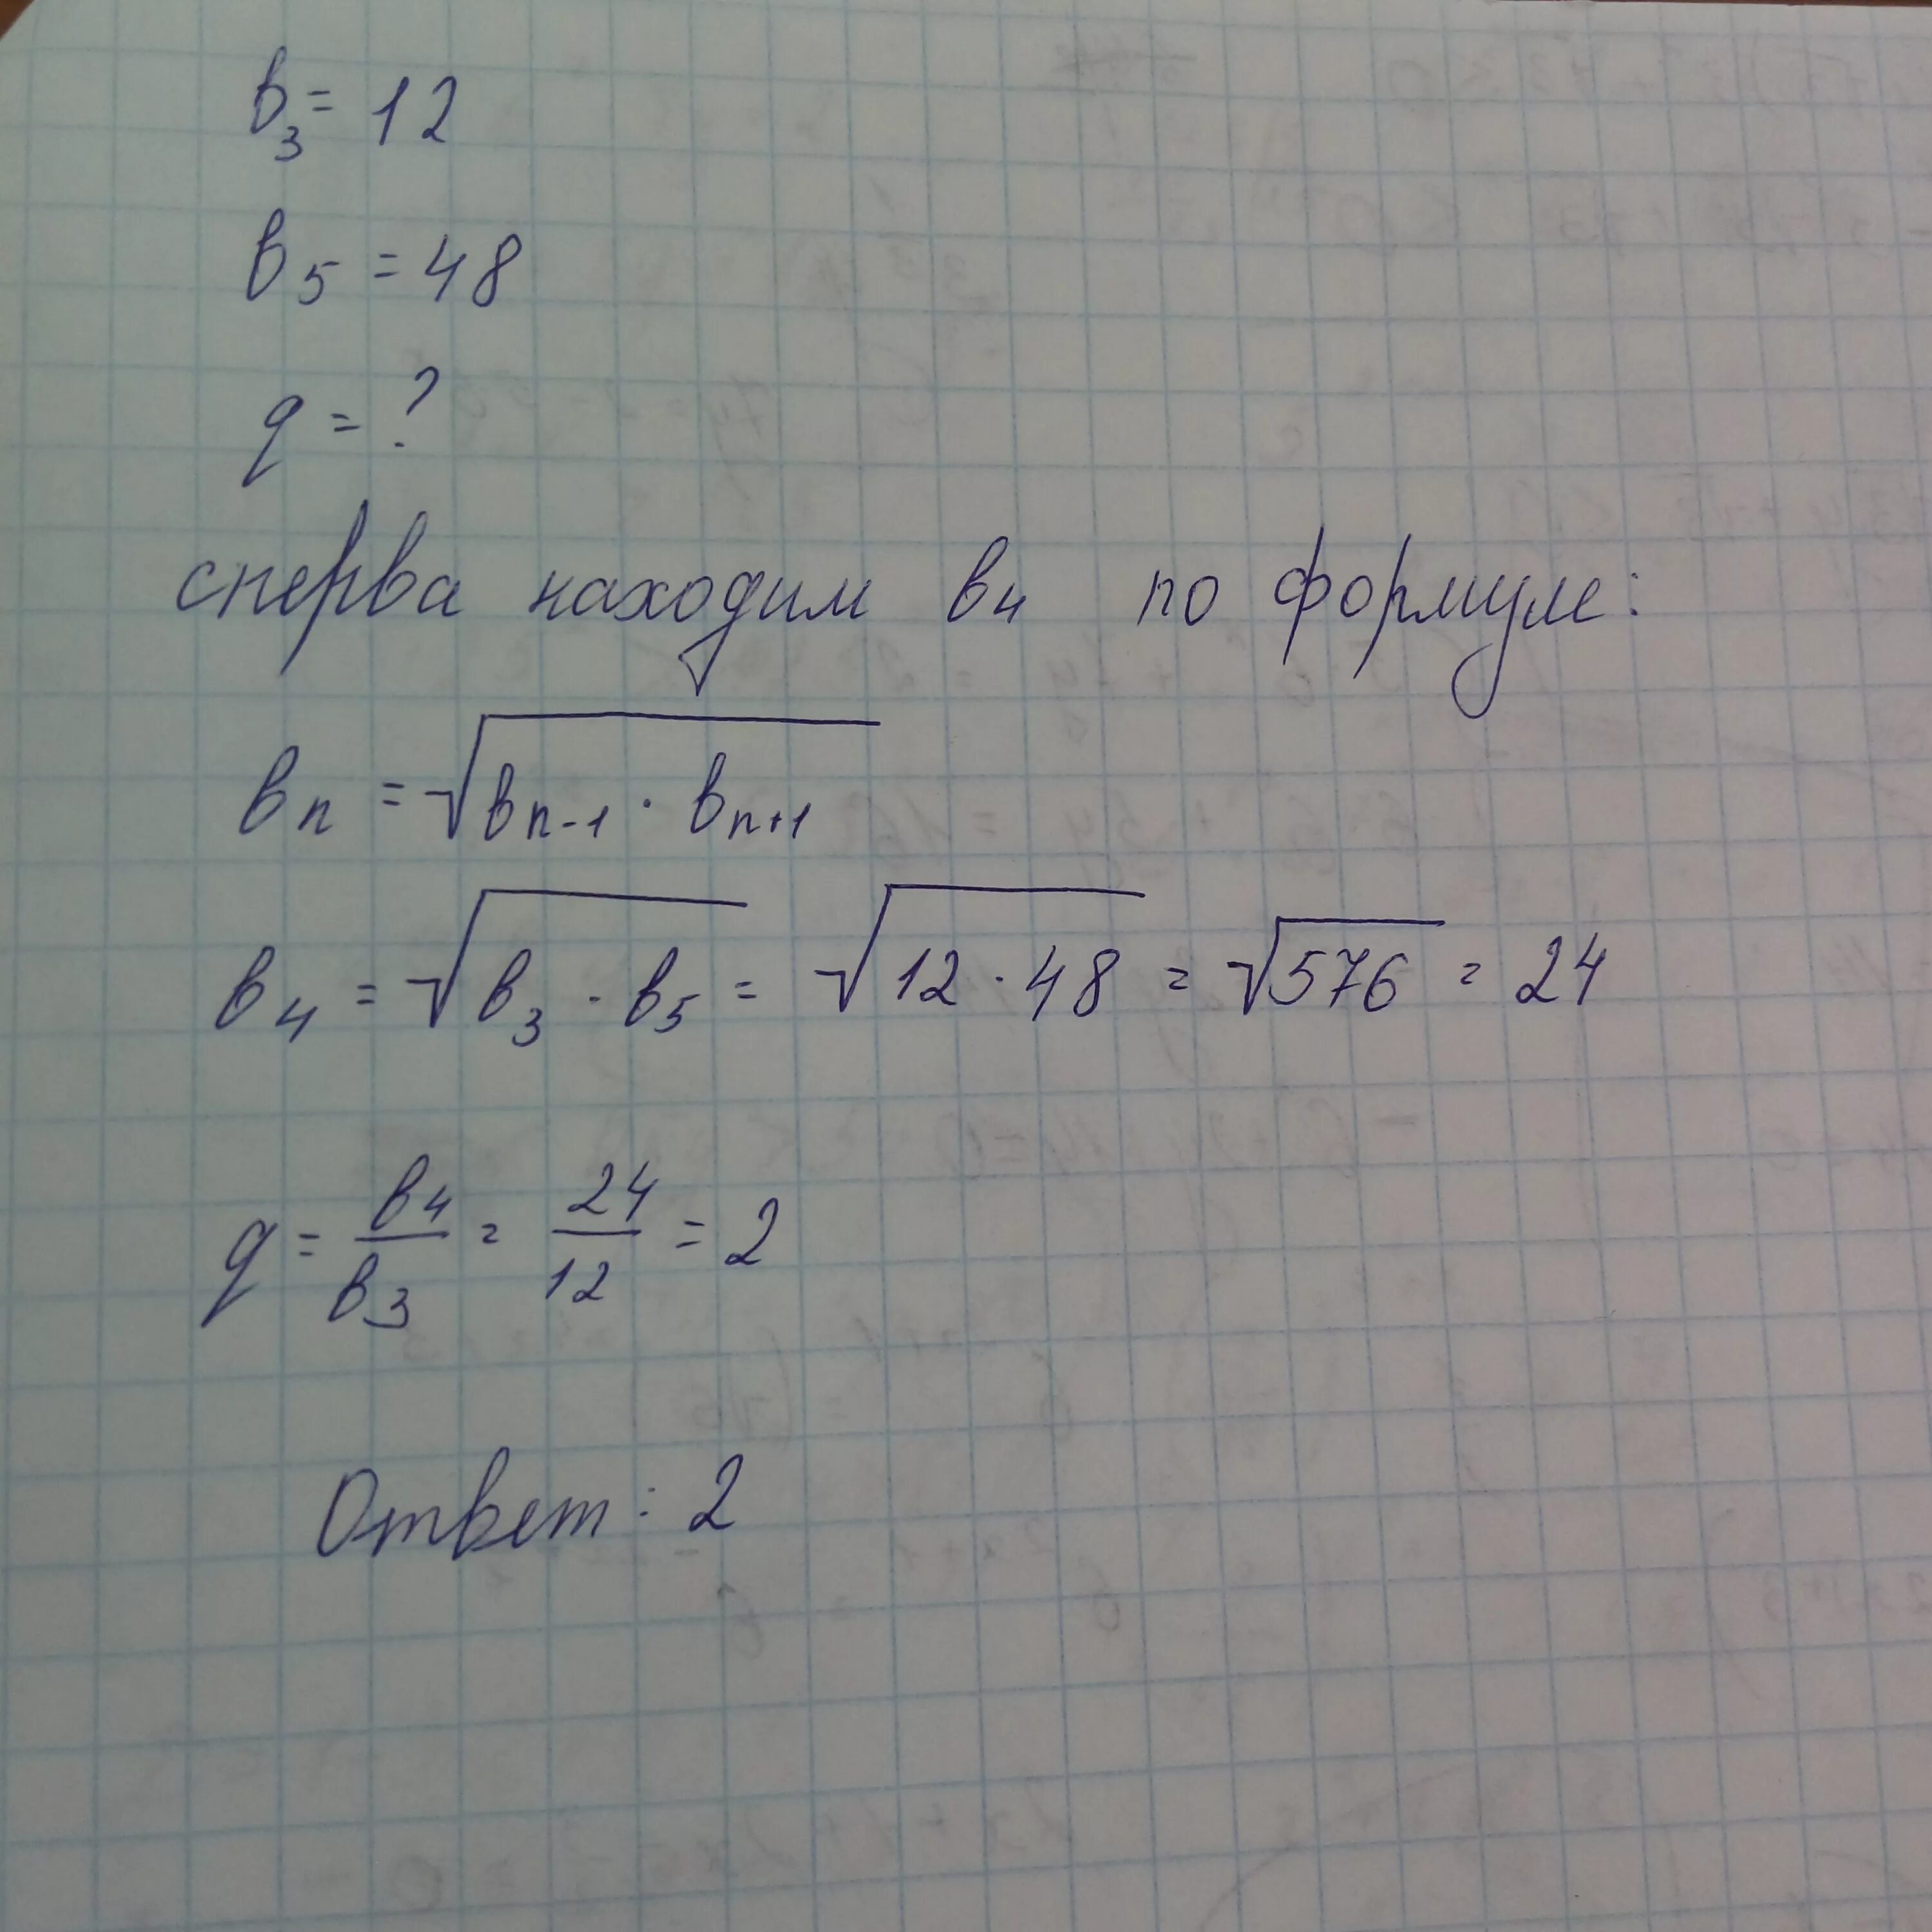 в₃ = 12
в₅ = 48
q = ?
сперва находим в₄ по формуле:
вₙ = √(вₙ₋₁ · вₙ₊₁)
в₄ = √(в₃ · в₅) = √(12 · 48) = √576 = 24
q = в₄/в₃ = 24/12 = 2
Ответ: 2